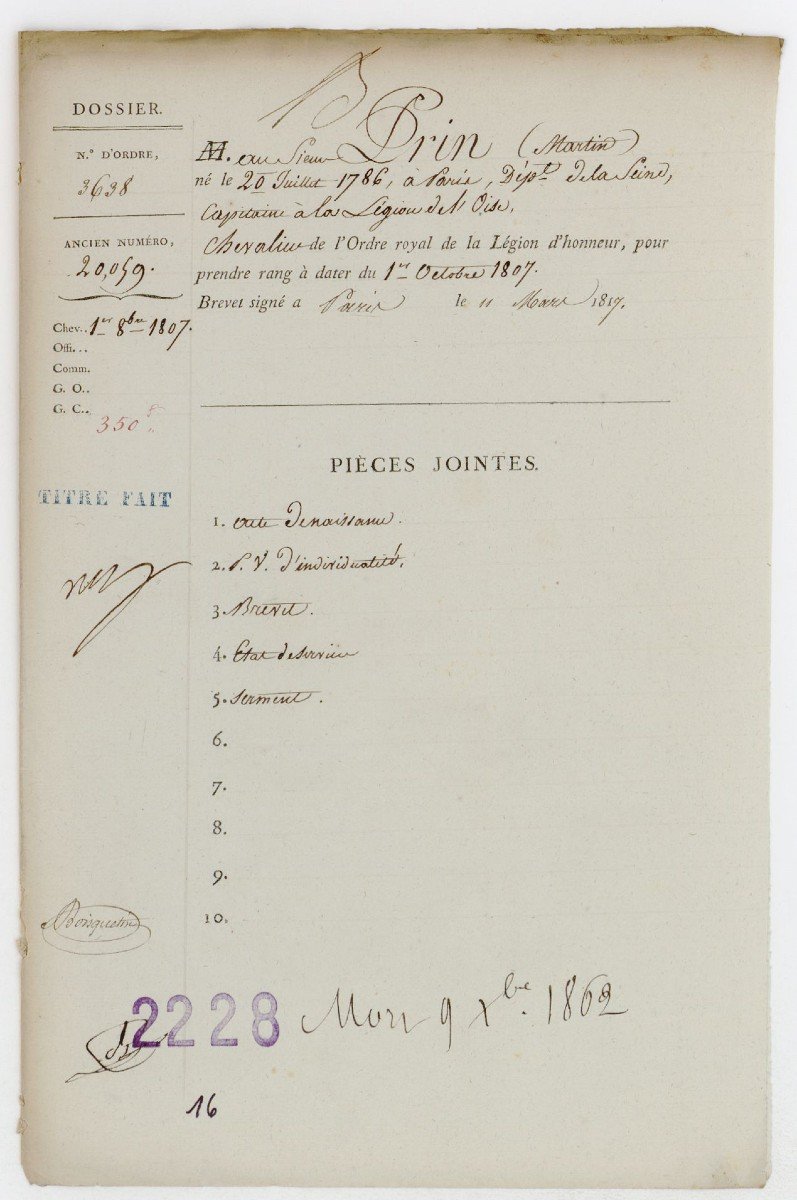 B
DOSSIER.
N.º D'ORDRE,
3638
ANCIEN NUMÉRO,
20,059.
Chev.. 1er 8bre 1807.
Offi...
Comm.
G. O..
G. C..
350
TITRE FAIT
M. au Sieur Prin (Martin)
né le 20 Juillet 1786, à Paris, Dépt. de la Seine,
Capitaine à la Légion de l'Oise.
Chevalier de l'Ordre royal de la Légion d'honneur, pour
prendre rang à dater du 1er Octobre 1807.
Brevet signé a Paris le 11 Mars 1817.
PIÈCES JOINTES.
1. acte de naissance.
2. P. V. d'individualité.
3. Brevet.
4. Etat de service
5. Serment.
6.
7.
8.
9.
10.
2228 Mort 9 Xbre. 1862
16